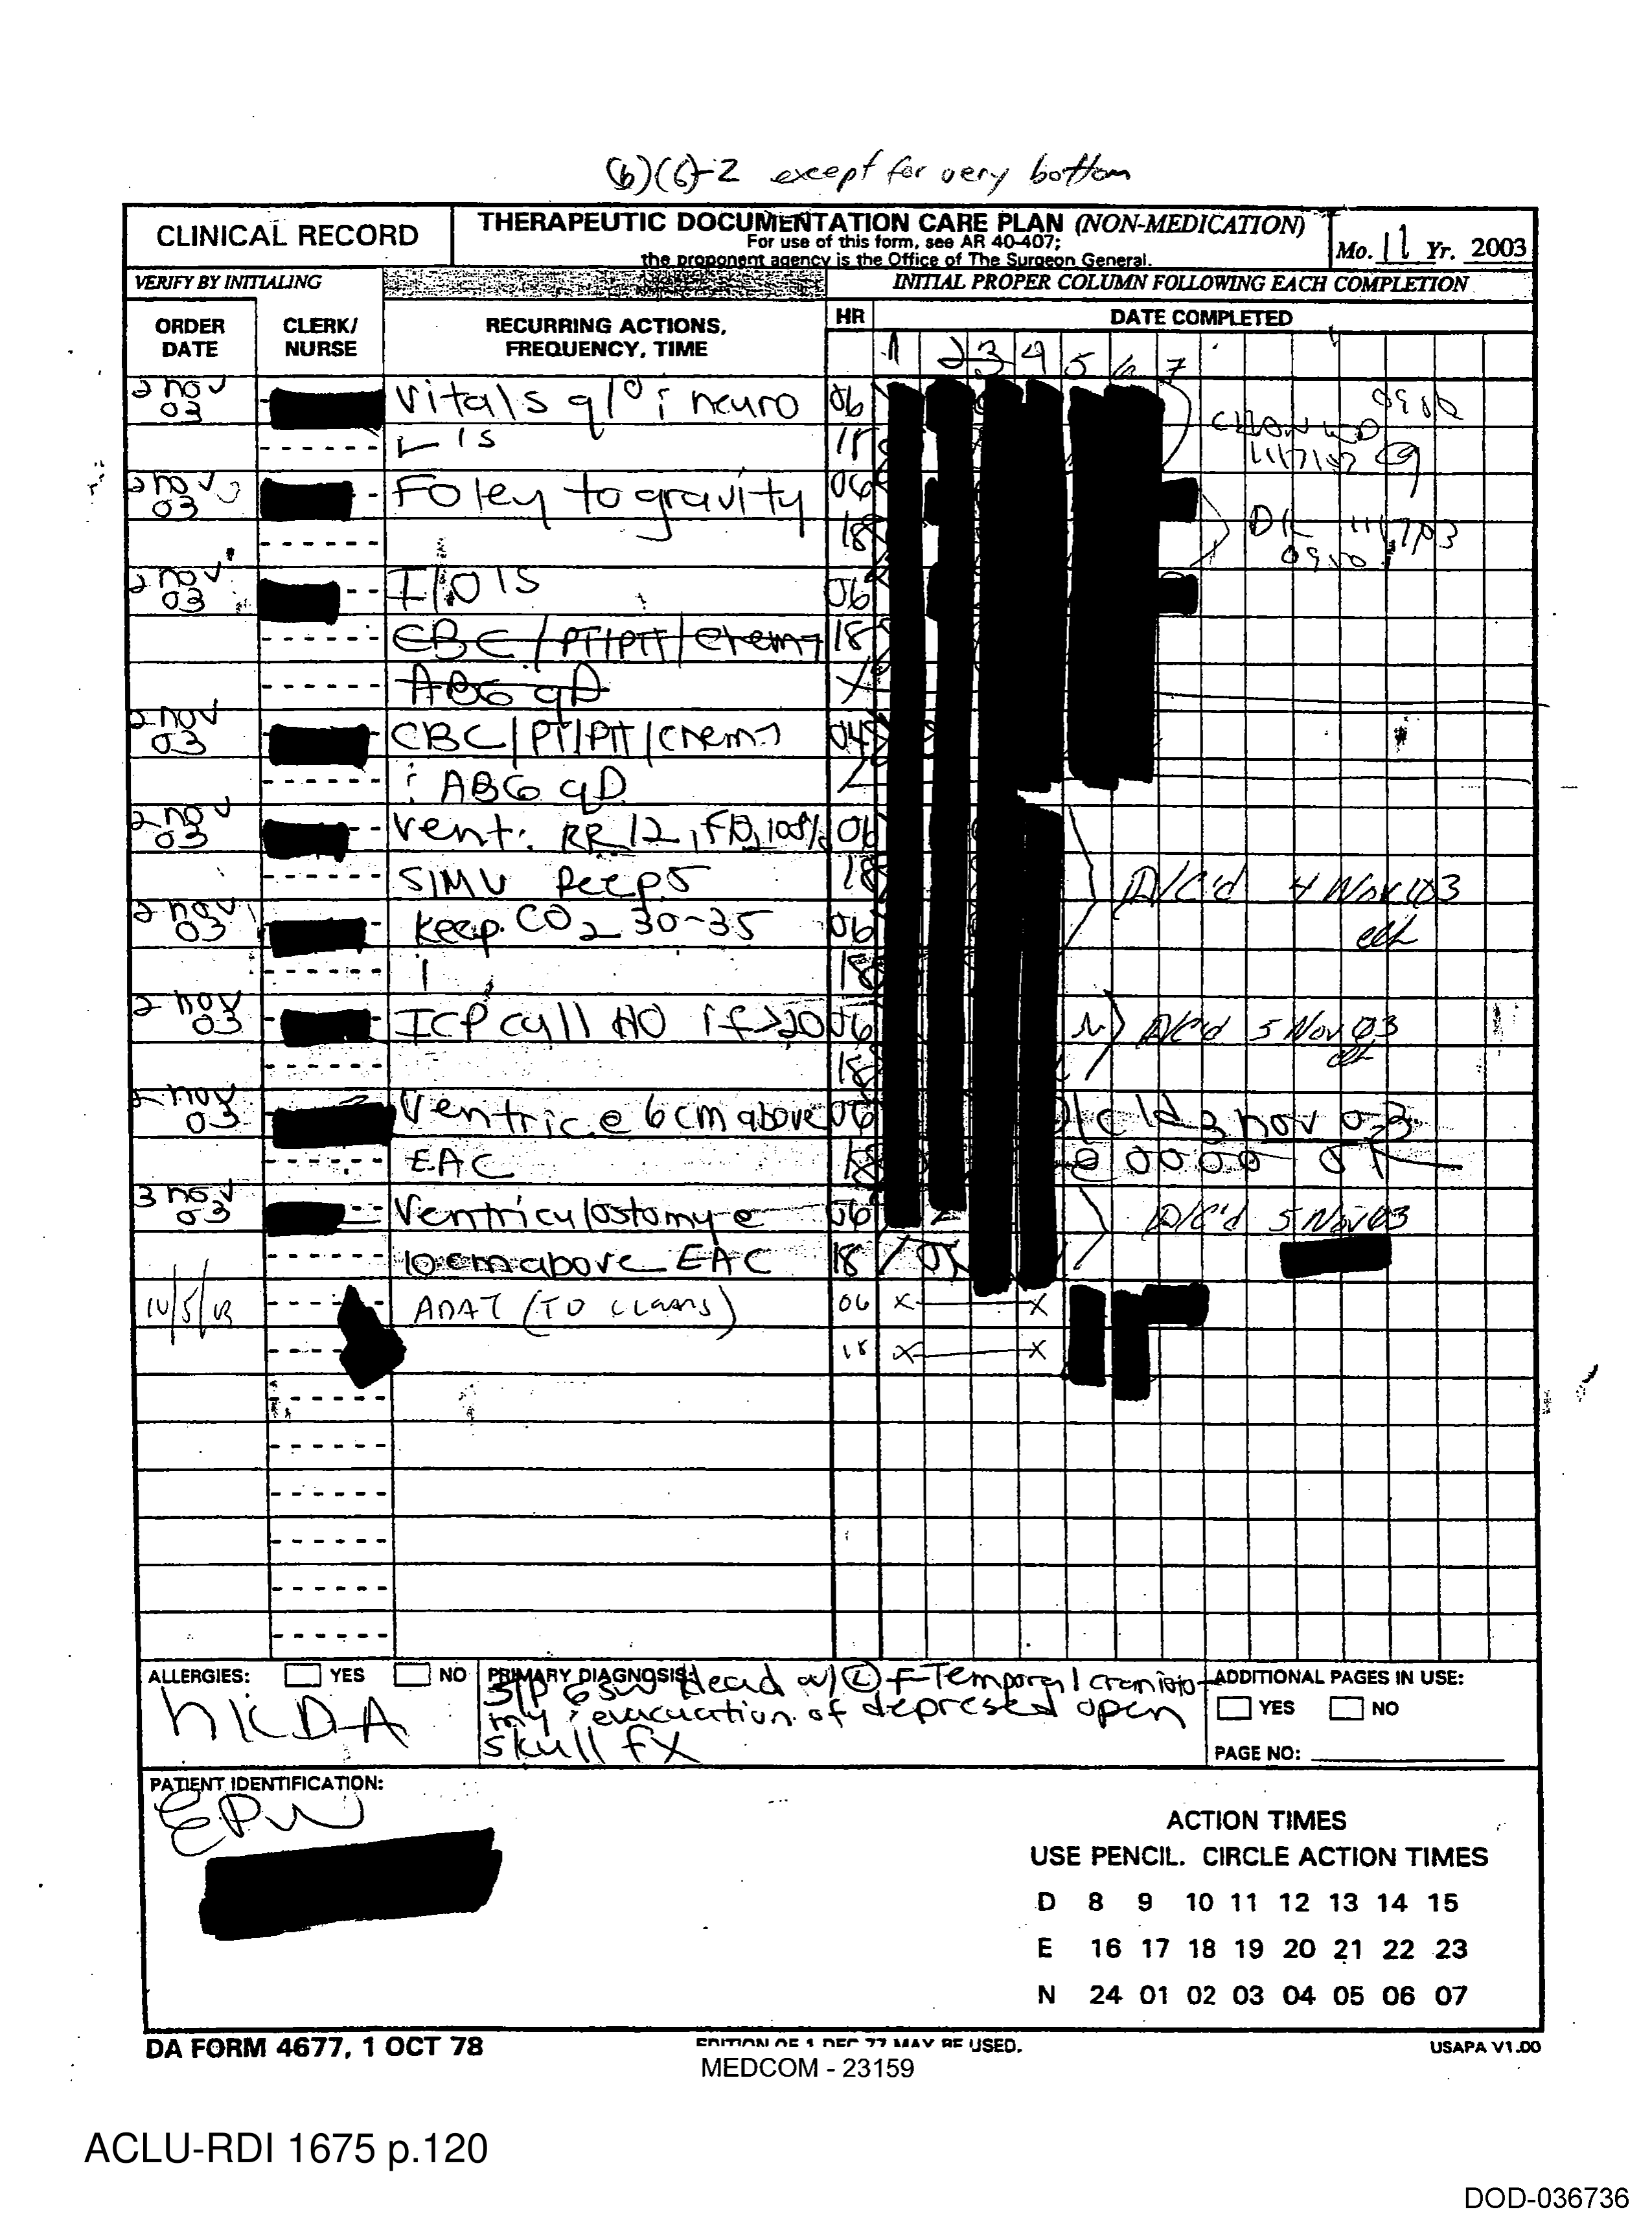 (b)(6)-2 except for very bottom
CLINICAL RECORD
THERAPEUTIC DOCUMENTATION CARE PLAN (NON-MEDICATION)
For use of this form, see AR 40-407;
the proponent agency is the Office of The Surgeon General.
Mo. 11 Yr. 2003
VERIFY BY INITIALING
INITIAL PROPER COLUMN FOLLOWING EACH COMPLETION
ORDER DATE
CLERK/ NURSE
RECURRING ACTIONS, FREQUENCY, TIME
HR
DATE COMPLETED
1 2 3 4 5 6 7
2 nov 03 Vitals q1° neuro 06
18
2 nov 03 Foley to gravity 06
18 11/7/03
2 nov 03 I/O's 06
CBC/PT/PTT/chem7 18
ABG qD
2 nov 03 CBC/PT/PTT/chem7 04
ABG qD
2 nov 03 Vent: RR 12, 06
SIMV Peep5 18 D/C'd 4 Nov 03
2 nov 03 Keep CO2 30-35 06
18
2 nov 03 ICP call HO if >20 06 D/C'd 5 Nov 03
18
2 nov 03 Ventric @ 6cm above 06 D/C'd 3 nov 03
EAC 18 @ 0000
3 nov 03 Ventriculostomy @ 06 D/C'd 5 Nov 03
10cm above EAC 18
11/5/03 ADAT (TO CLEARS) 06 X X
18 X X
ALLERGIES: YES NO
NKDA
PRIMARY DIAGNOSIS:
S/P GSW Head w/ (L) F-Temporal craniotomy
evacuation of depressed open
skull fx
ADDITIONAL PAGES IN USE:
YES NO
PAGE NO:
PATIENT IDENTIFICATION:
EPW
ACTION TIMES
USE PENCIL. CIRCLE ACTION TIMES
D 8 9 10 11 12 13 14 15
E 16 17 18 19 20 21 22 23
N 24 01 02 03 04 05 06 07
DA FORM 4677, 1 OCT 78
EDITION OF 1 DEC 77 MAY BE USED.
USAPA V1.00
MEDCOM - 23159
ACLU-RDI 1675 p.120
DOD-036736